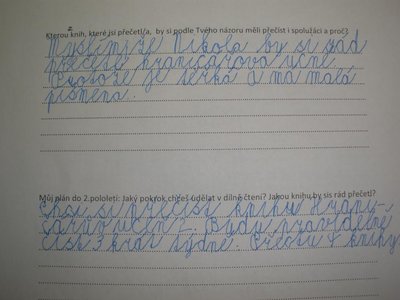 Kterou knih, které jsi přečetl/a, by si podle Tvého názoru měli přečíst i spolužáci a proč?
Myslím že Nikola by si rád
přečetl hraničářova učně
Protože je terká a má malá
písmena.
Můj plán do 2.pololetí: Jaký pokrok chceš udělat v dílně čtení? Jakou knihu by sis rád přečetl?
Chci si přečíst knihu Hrani-
čářův učen 2. Budu pravidelně
číst 3 krát týdně. Přečtu 4 knihy